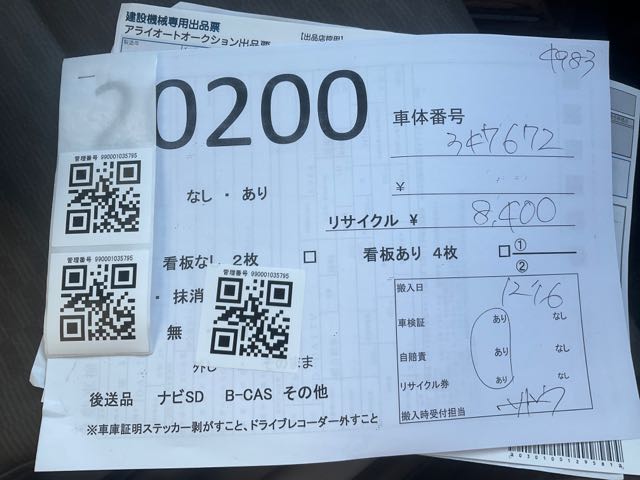 建設機械専用出品票
アライオートオークション出品票
【出品店控用】
4983
20200
車体番号
347672
管理番号 990001035795
なし ・ あり
¥
リサイクル ¥ 8,400
看板なし 2枚 □ 看板あり 4枚 □ ①
②
管理番号 990001035795
管理番号 990001035795
・ 抹消
無
搬入日 12/16
車検証 あり なし
自賠責 あり なし
リサイクル券 あり なし
搬入時受付担当
外し
まま
後送品 ナビSD B-CAS その他
※車庫証明ステッカー剥がすこと、ドライブレコーダー外すこと